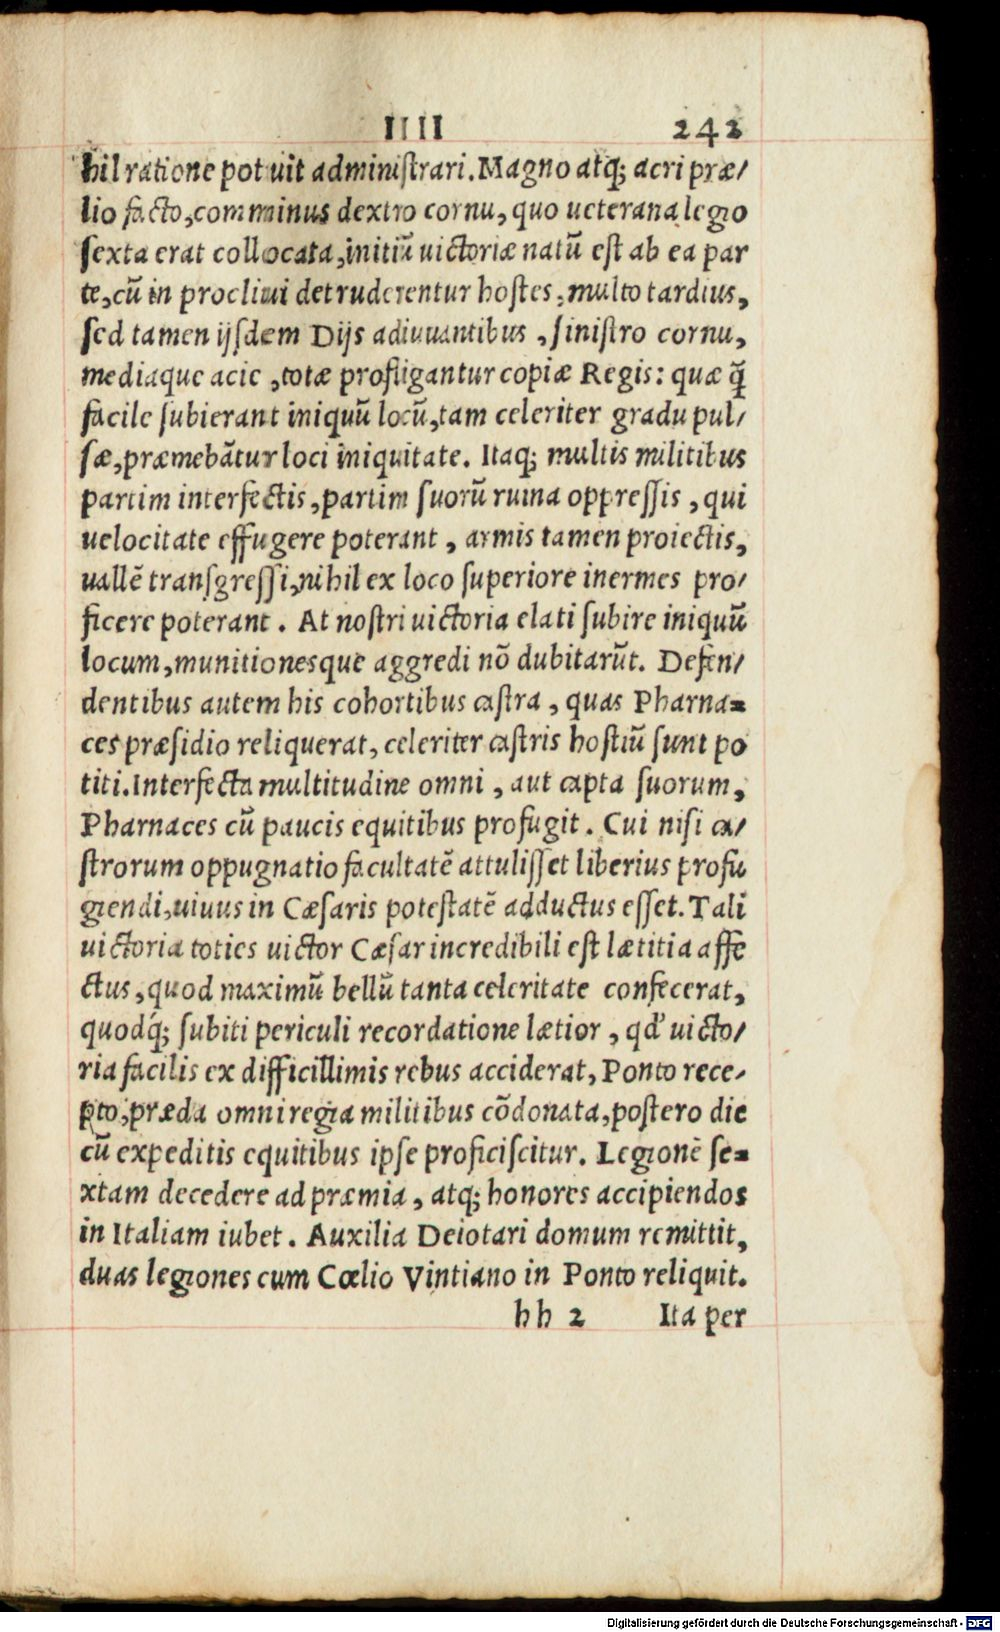 IIII 242
hil ratione potuit administrari. Magno atq; acri præ/
lio facto, comminus dextro cornu, quo ueterana legio
sexta erat collocata, initiũ uictoriæ natũ est ab ea par
te, cũ in procliui detruderentur hostes, multo tardius,
sed tamen ijsdem Dijs adiuuantibus, sinistro cornu,
mediaque acie, totæ profligantur copiæ Regis: quæ q̃
facile subierant iniquũ locũ, tam celeriter gradu pul/
sæ, præmebãtur loci iniquitate. Itaq; multis militibus
partim interfectis, partim suorũ ruina oppressis, qui
uelocitate effugere poterant, armis tamen proiectis,
uallẽ transgressi, nihil ex loco superiore inermes pro/
ficere poterant. At nostri uictoria elati subire iniquũ
locum, munitionesque aggredi nõ dubitarũt. Defen/
dentibus autem his cohortibus castra, quas Pharna=
ces præsidio reliquerat, celeriter castris hostiũ sunt po
titi. Interfecta multitudine omni, aut capta suorum,
Pharnaces cũ paucis equitibus profugit. Cui nisi ca/
strorum oppugnatio facultatẽ attulisset liberius profu
giendi, uiuus in Cæsaris potestatẽ adductus esset. Tali
uictoria toties uictor Cæsar incredibili est lætitia affe
ctus, quod maximũ bellũ tanta celeritate confecerat,
quodq́; subiti periculi recordatione lætior, qd' uicto/
ria facilis ex difficillimis rebus acciderat, Ponto rece/
pto, præda omni regia militibus cõdonata, postero die
cũ expeditis equitibus ipse proficiscitur. Legionẽ se=
xtam decedere ad præmia, atq; honores accipiendos
in Italiam iubet. Auxilia Deiotari domum remittit,
duas legiones cum Cœlio Vintiano in Ponto reliquit.
hh 2 Ita per
Digitalisierung gefördert durch die Deutsche Forschungsgemeinschaft - DFG